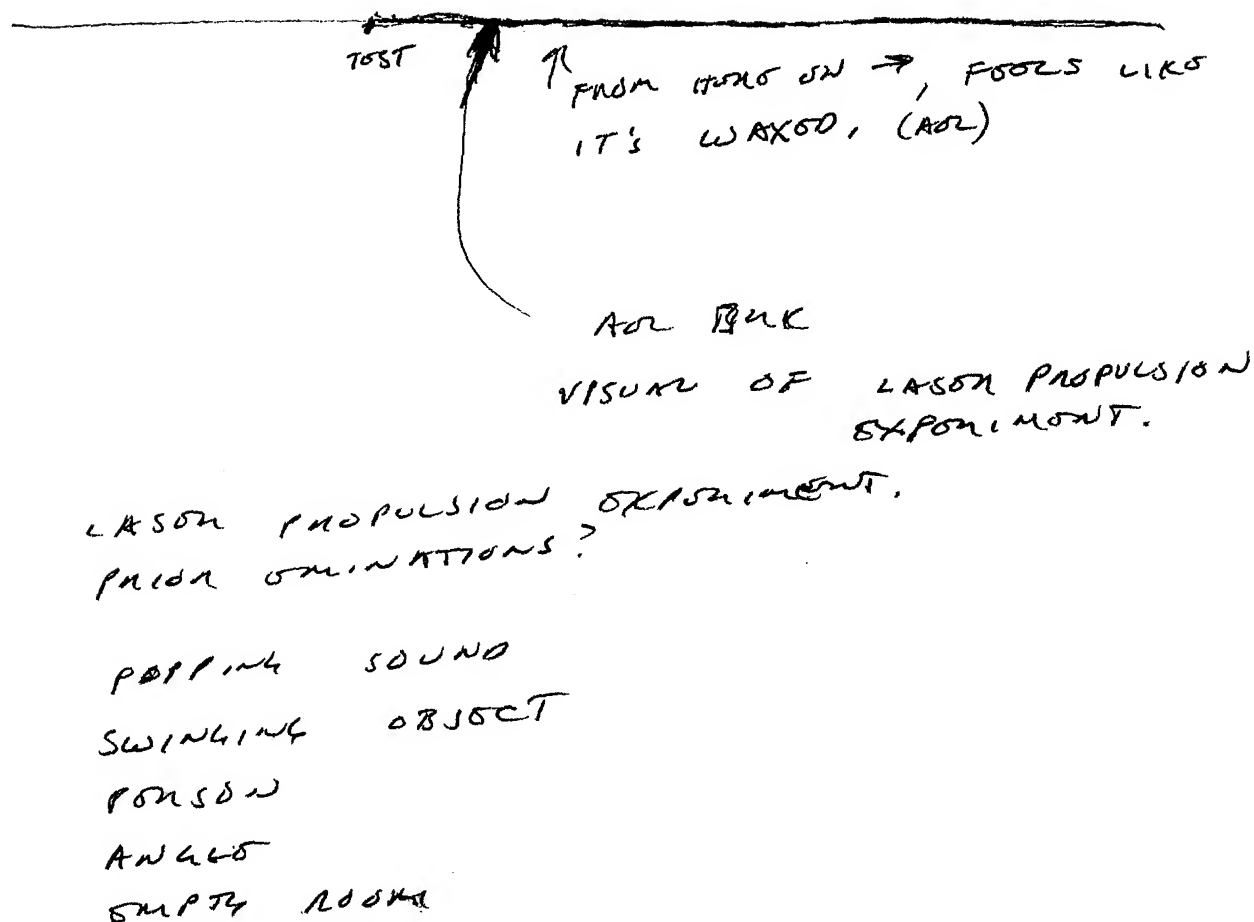 TEST
↑ FROM HERE ON →, FEELS LIKE
IT'S WAXED, (AOL)
AOL BRK
VISUAL OF LASER PROPULSION
EXPERIMENT.
LASER PROPULSION EXPERIMENT.
PRIOR EMINATIONS?
POPPING SOUND
SWINGING OBJECT
PERSON
ANGLE
EMPTY ROOM